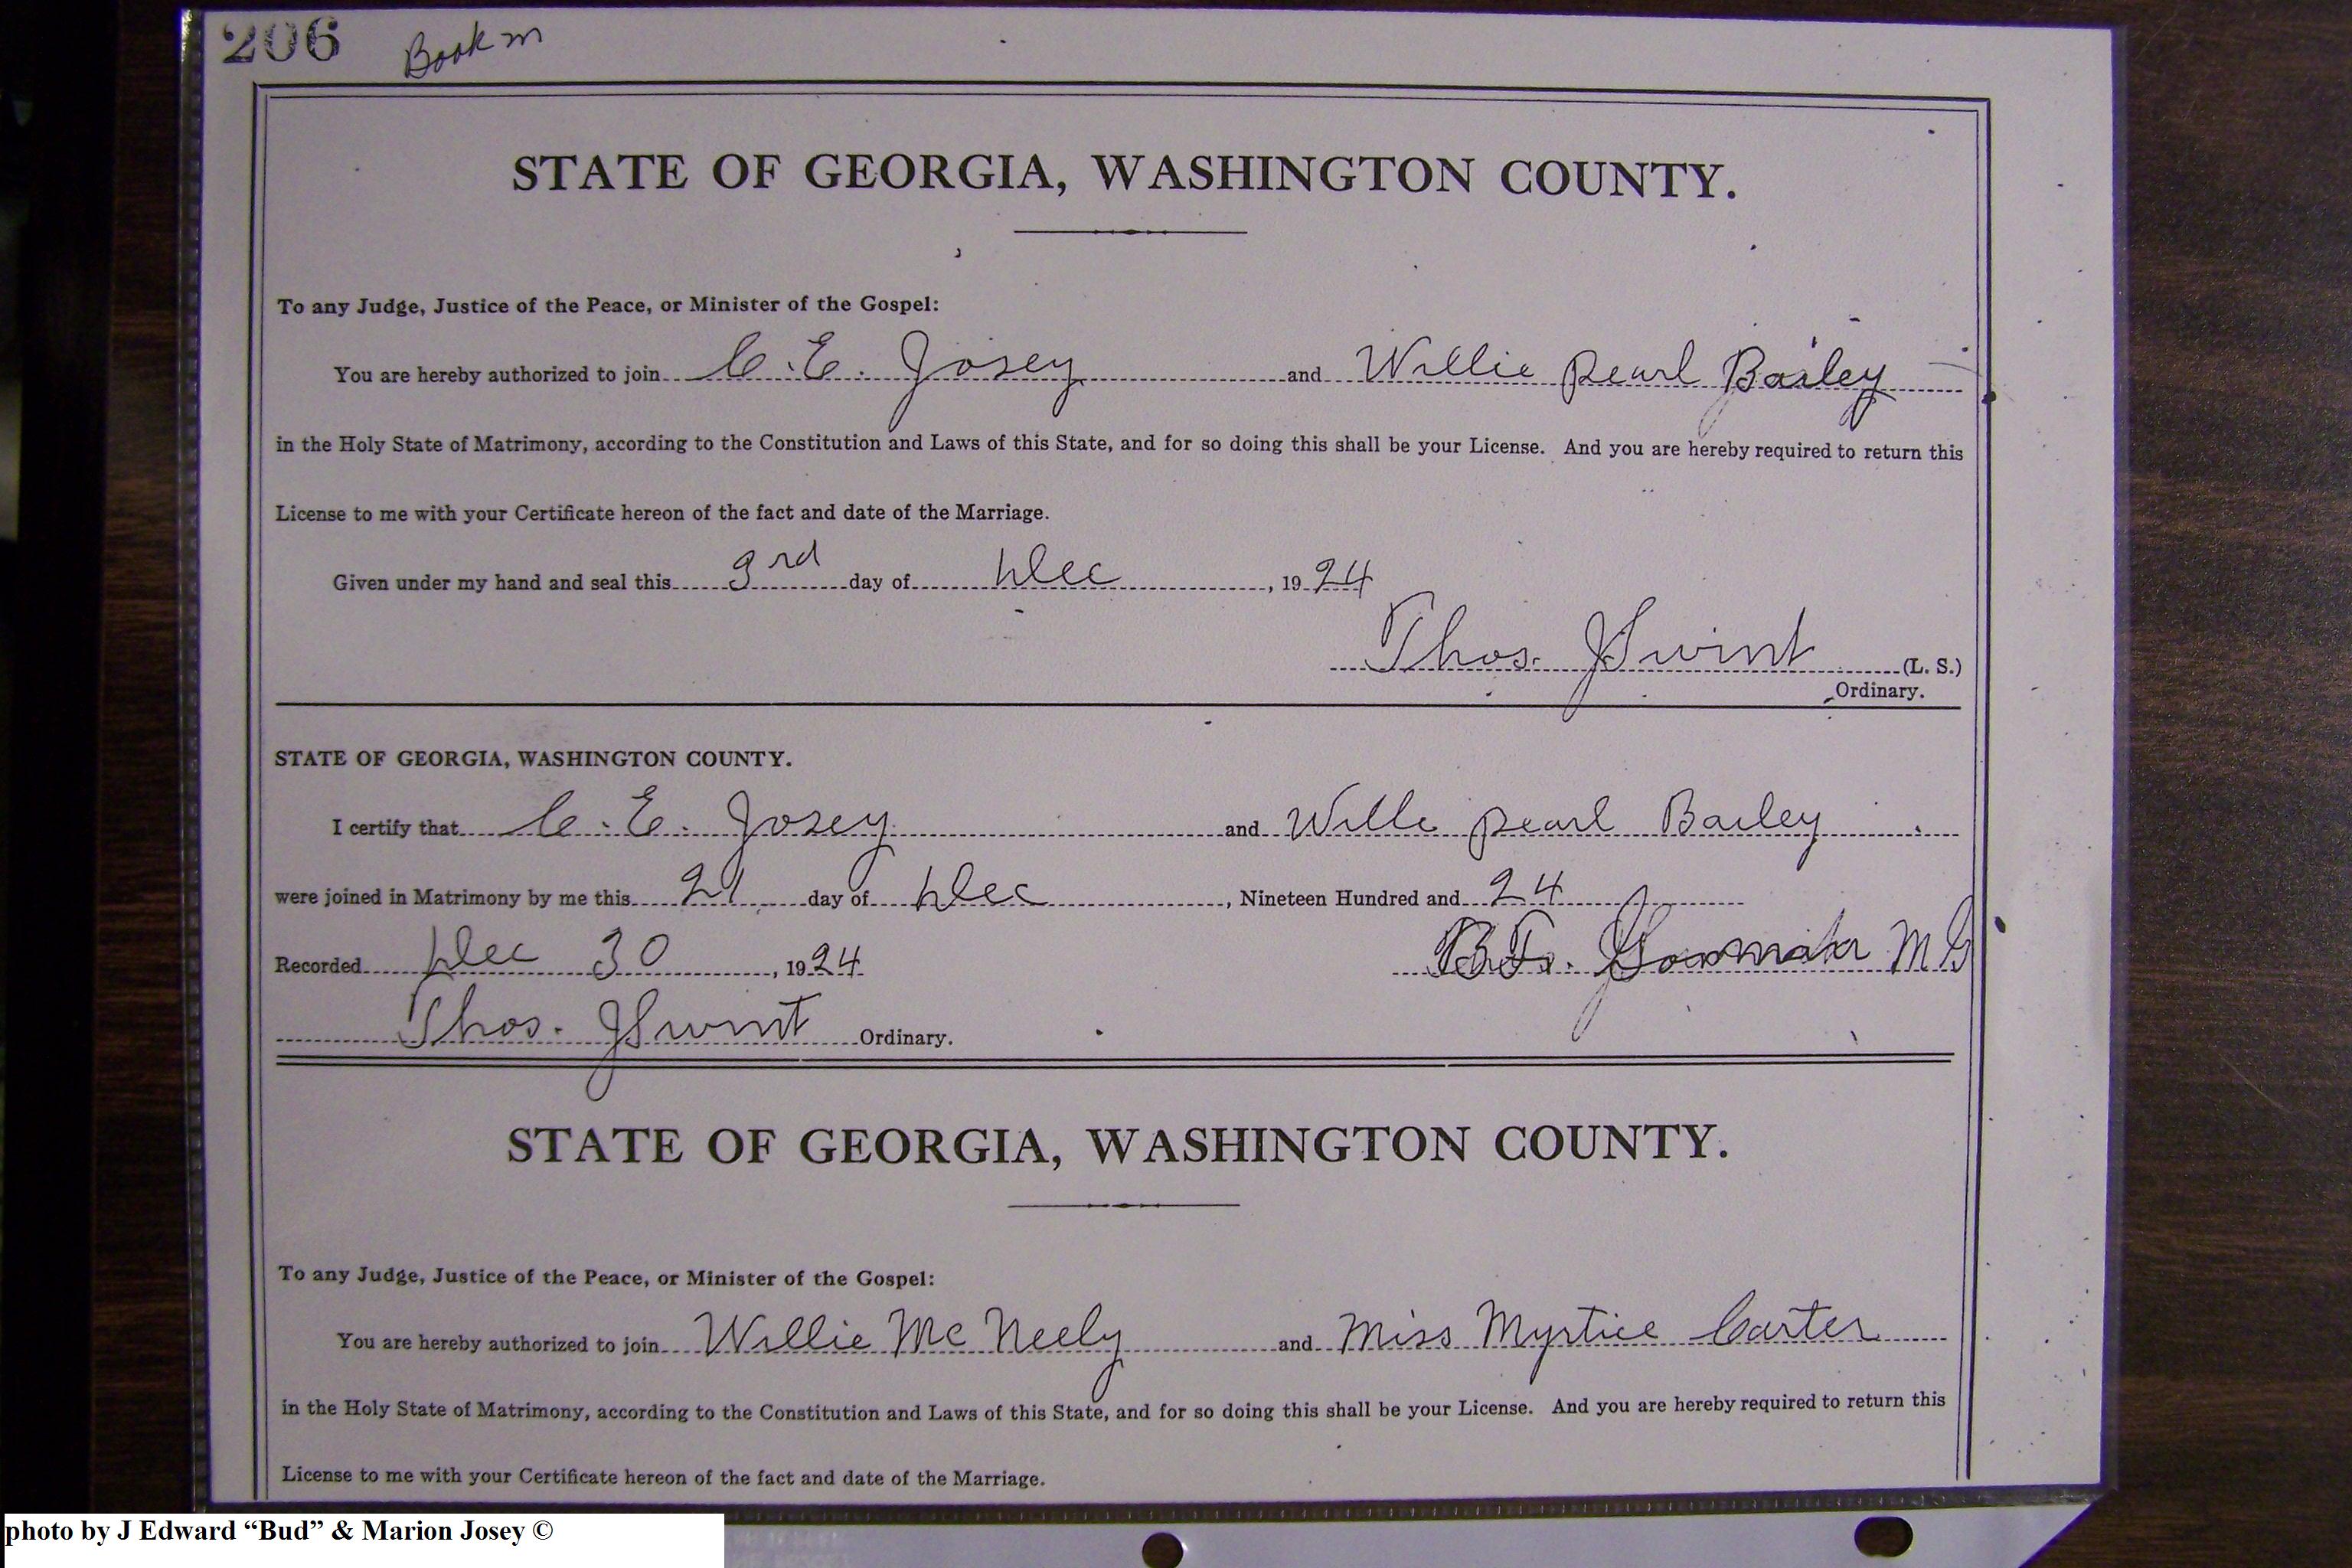 206 Book M
STATE OF GEORGIA, WASHINGTON COUNTY.
To any Judge, Justice of the Peace, or Minister of the Gospel:
You are hereby authorized to join C. E. Josey and Willie Pearl Bailey
in the Holy State of Matrimony, according to the Constitution and Laws of this State, and for so doing this shall be your License. And you are hereby required to return this
License to me with your Certificate hereon of the fact and date of the Marriage.
Given under my hand and seal this 3rd day of Dec, 1924
Thos. J Swint (L. S.)
Ordinary.
STATE OF GEORGIA, WASHINGTON COUNTY.
I certify that C. E. Josey and Willie Pearl Bailey
were joined in Matrimony by me this 21 day of Dec, Nineteen Hundred and 24
Recorded Dec 30, 1924 M G
Thos. J Swint Ordinary.
STATE OF GEORGIA, WASHINGTON COUNTY.
To any Judge, Justice of the Peace, or Minister of the Gospel:
You are hereby authorized to join Willie McNeely and Miss Myrtice Carter
in the Holy State of Matrimony, according to the Constitution and Laws of this State, and for so doing this shall be your License. And you are hereby required to return this
License to me with your Certificate hereon of the fact and date of the Marriage.
photo by J Edward “Bud” & Marion Josey ©